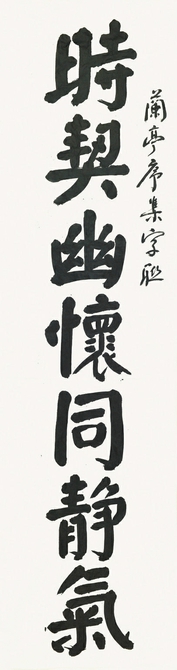 蘭亭序集字聯
時契幽懷同静氣